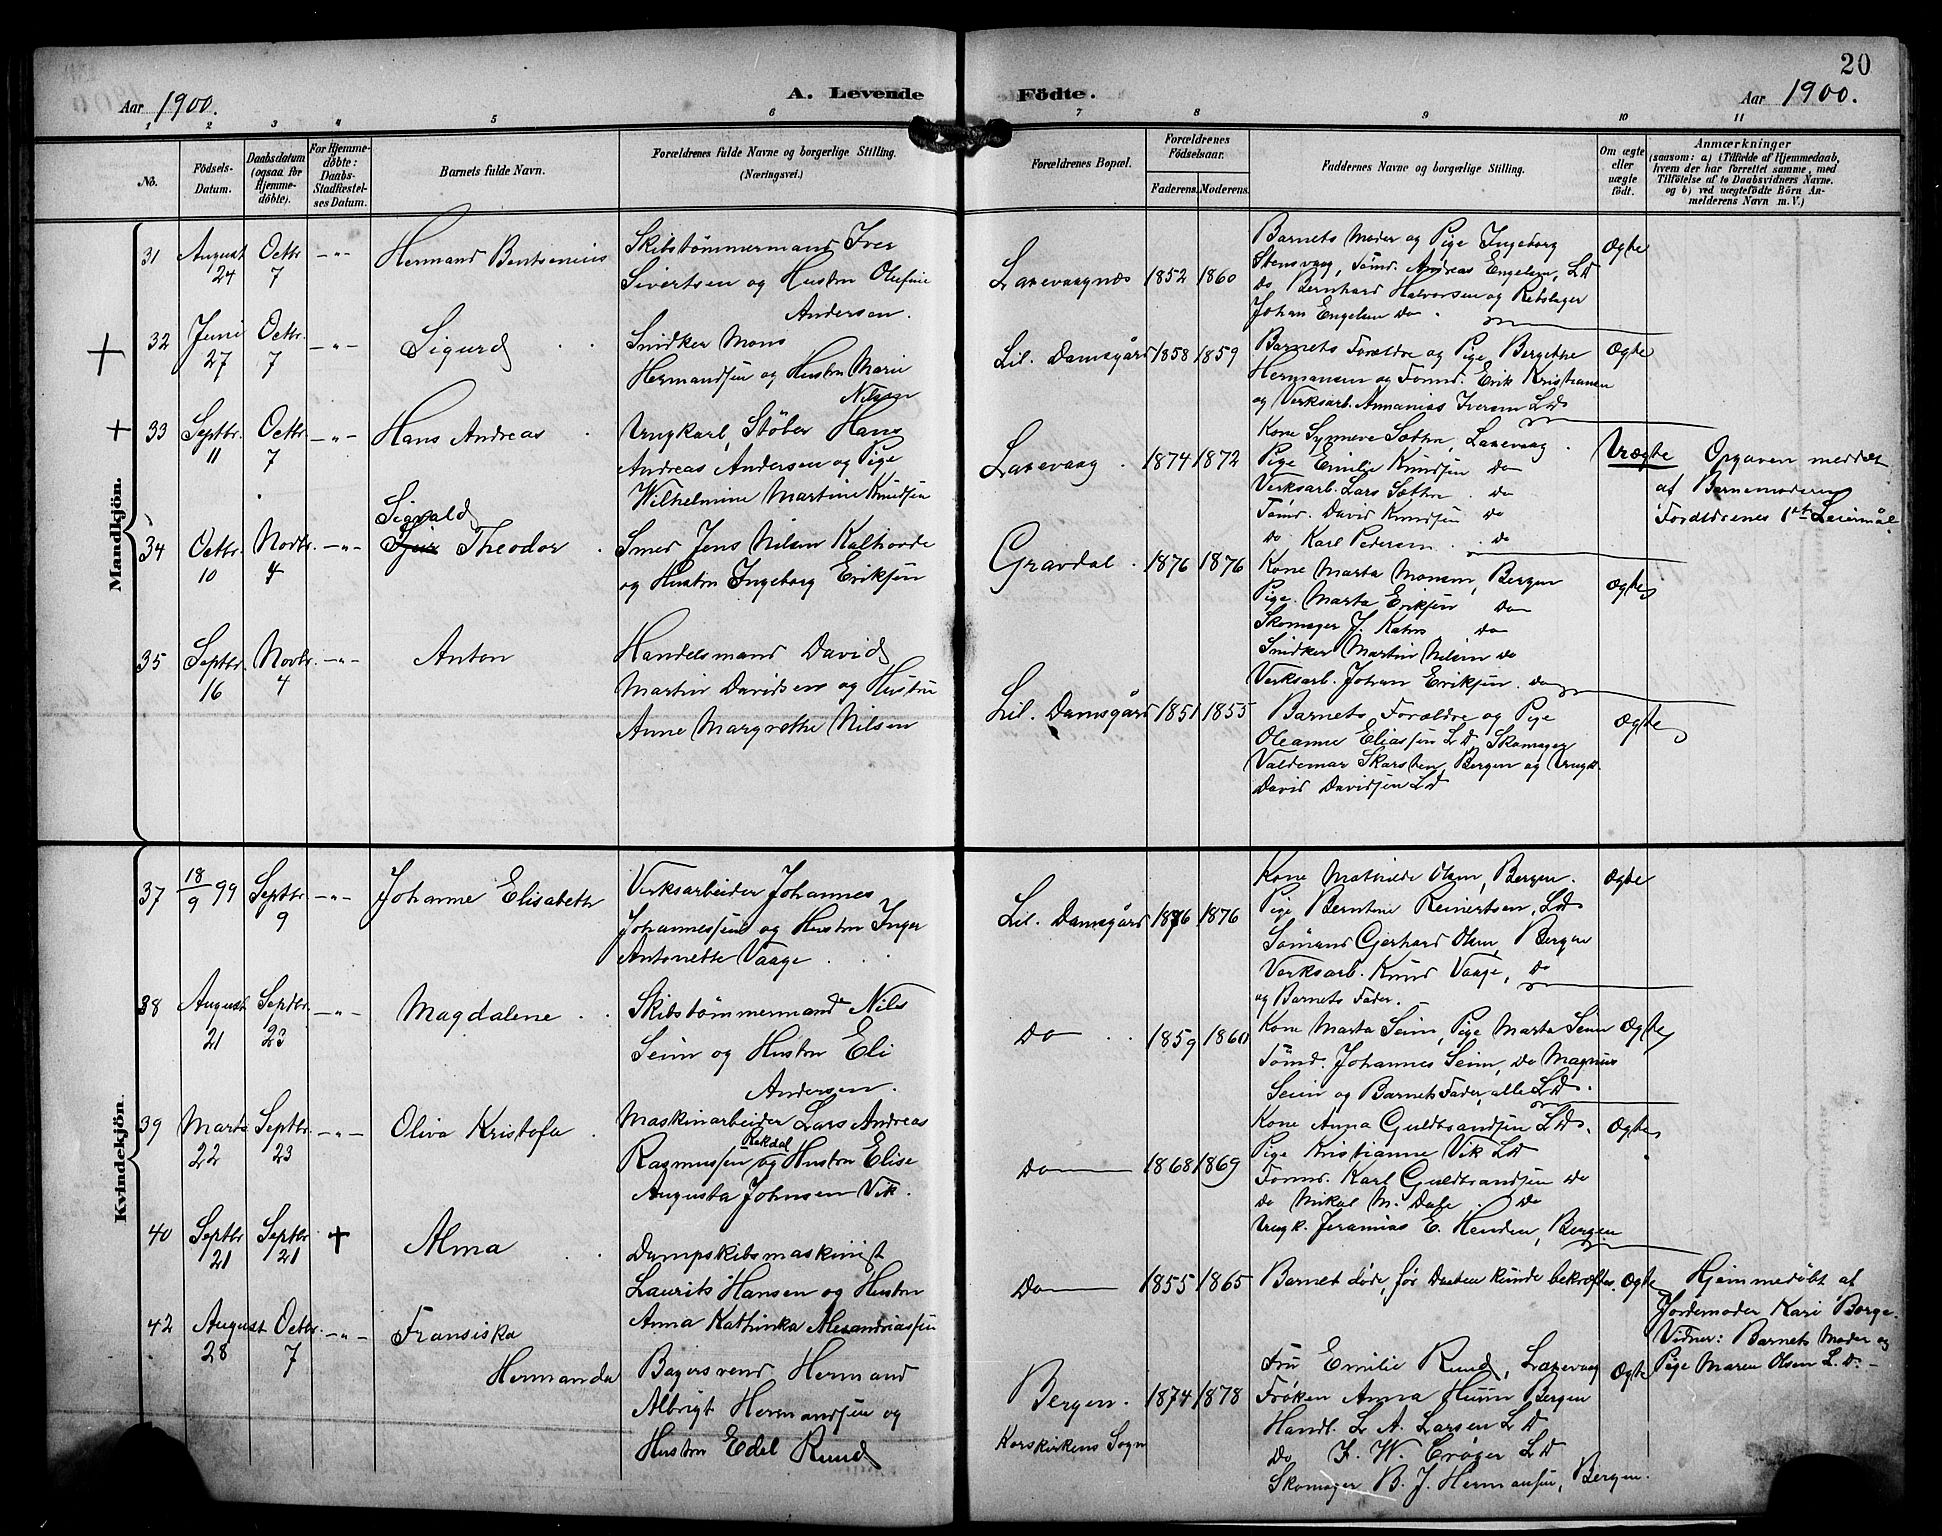 20
Aar 1900.
A. Levende
Födte.
Aar 1900.
1 2 3 4 5 6
7 8 9 10 11
No.
Födsels-
Datum.
Daabsdatum
(ogsaa for
Hjemme-
döbte).
For Hjemme-
döbte:
Daabs-
Stadfæstel-
ses Datum.
Barnets fulde Navn.
Forældrenes fulde Navne og borgerlige Stilling.
(Næringsvei.)
Forældrenes Bopæl.
Forældrenes
Födselsaar.
Faderens. Moderens.
Faddernes Navne og borgerlige Stilling.
Om ægte
eller
uægte
födt.
Anmærkninger
(saasom: a) i Tilfælde af Hjemmedaab,
hvem der har forrettet samme, med
Tilföielse af to Daabsvidners Navne.
og b) ved uægtefödte Börn An-
melderens Navn m. V.)
Mandkjön.
31 August 24 Octbr. 7 -"- Hermand Bentsenius
Skibstömmermand Iver
Sivertsen og Hustru Olufine
Andersen.
Laxevaagnæs 1852 1860
Barnets Moder og Pige Ingeborg
Stensvaag, Tömd. Andreas Engelsen, LD
do Bernhard Halvorsen og Rebslager
Johan Engelsen do.
Ægte
32 Juni 27 Octbr. 7 -"- Sigurd
Snidker Mons
Hermandsen og Hustru Marie
Nilsen
Lil. Damsgård 1858 1859
Barnets Forældre og Pige Bergithe
Hermansen og Formd. Erik Kristiansen
og Verksarb. Annanias Iversen LD
Ægte
33 Septbr. 11 Octbr. 7 -"- Hans Andreas
Ungkarl, Støber Hans
Andreas Andersen og Pige
Wilhelmine Martine Knudsen
Laxevaag 1874 1872
Kone Synneve Sætre, Laxevaag.
Pige Emilie Knudsen do
Verksarb. Lars Sætre do
Tömd. David Knudsen do
do Karl Pedersen do
Uægte
Opgaven meddelt
af Barnemoderen
Forældrenes 1ste Leiermål
34 Octbr. 10 Novbr. 4 -"- Sigvald
Theodor
Smed Jens Nilsen Kaltvedt
og Hustru Ingeborg Eriksen
Gravdal 1876 1876
Kone Marta Monsen, Bergen
Pige Marta Eriksen do
Skomager J. Kahrs do
Snidker Martin Nilsen do
Verksarb. Johan Eriksen do
Ægte
35 Septbr. 16 Novbr. 4 -"- Anton
Handelsmand David
Martin Davidsen og Hustru
Anne Margrethe Nilsen
Lil. Damsgård 1851 1855
Barnets Forældre og Pige
Oleanne Eliassen LD, Skomager
Valdemar Skarsten, Bergen og Ungk.
David Davidsen LD
Ægte
Kvindekjön.
37 18/9 99 Septbr 9 -"- Johanne Elisabeth
Verksarbeider Johannes
Johannessen og Hustru Inger
Antonette Vaage
Lil. Damsgård 1876 1876
Kone Mathilde Olsen, Bergen.
Pige Berntine Reinertsen, LD
Sömand Gerhard Olsen, Bergen
Verksarb. Knud Vaage, do
og Barnets Fader.
Ægte
38 August 21 Septbr. 23 -"- Magdalene
Skibstömmermand Nils
Seim og Hustru Eli
Andersen.
Do 1859 1860
Kone Marta Seim, Pige Marta Seim
Tömd. Johannes Seim, do Magnus
Seim og Barnets Fader, alle LD.
Ægte
39 Marts 22 Septbr. 23 -"- Oliva Kristofa
Maskinarbeider Lars Andreas
Rakdal
Rasmussen og Hustru Elise
Augusta Johnsen Vik.
Do 1868 1869
Kone Anna Guldbrandsen LD.
Pige Kristianne Vik LD
Formd. Karl Guldbrandsen do
do Mikal M. Dale do
Ungk. Jeramias E. Henden, Bergen
Ægte
40 Septbr 21 Septbr 21 + Alma
Dampskibsmaskinist
Laurits Hansen og Hustru
Anna Kathinka
Do 1855 1865
Barnet døde, før Daaben kunde bekræftes.
Ægte
Hjemmedøbt af
Jordemoder Kari Borge.
Vidner: Barnets Moder og
Pige Maren Olsen L.D.
42 August 28 Octbr. 7 -"- Fransiska
Hermanda
Bagersvend Hermand
Albrigt Hermandsen og
Hustru Edel Ruud
Bergen.
Korskirkens Sogn
1874 1878
Fru Emilie Ruud, Laxevaag
Frøken Anna Huun Bergen
Handl. L. A. Larsen LD
do F. W. Crøger LD
Skomager B. J. Hermansen, Bergen.
Ægte